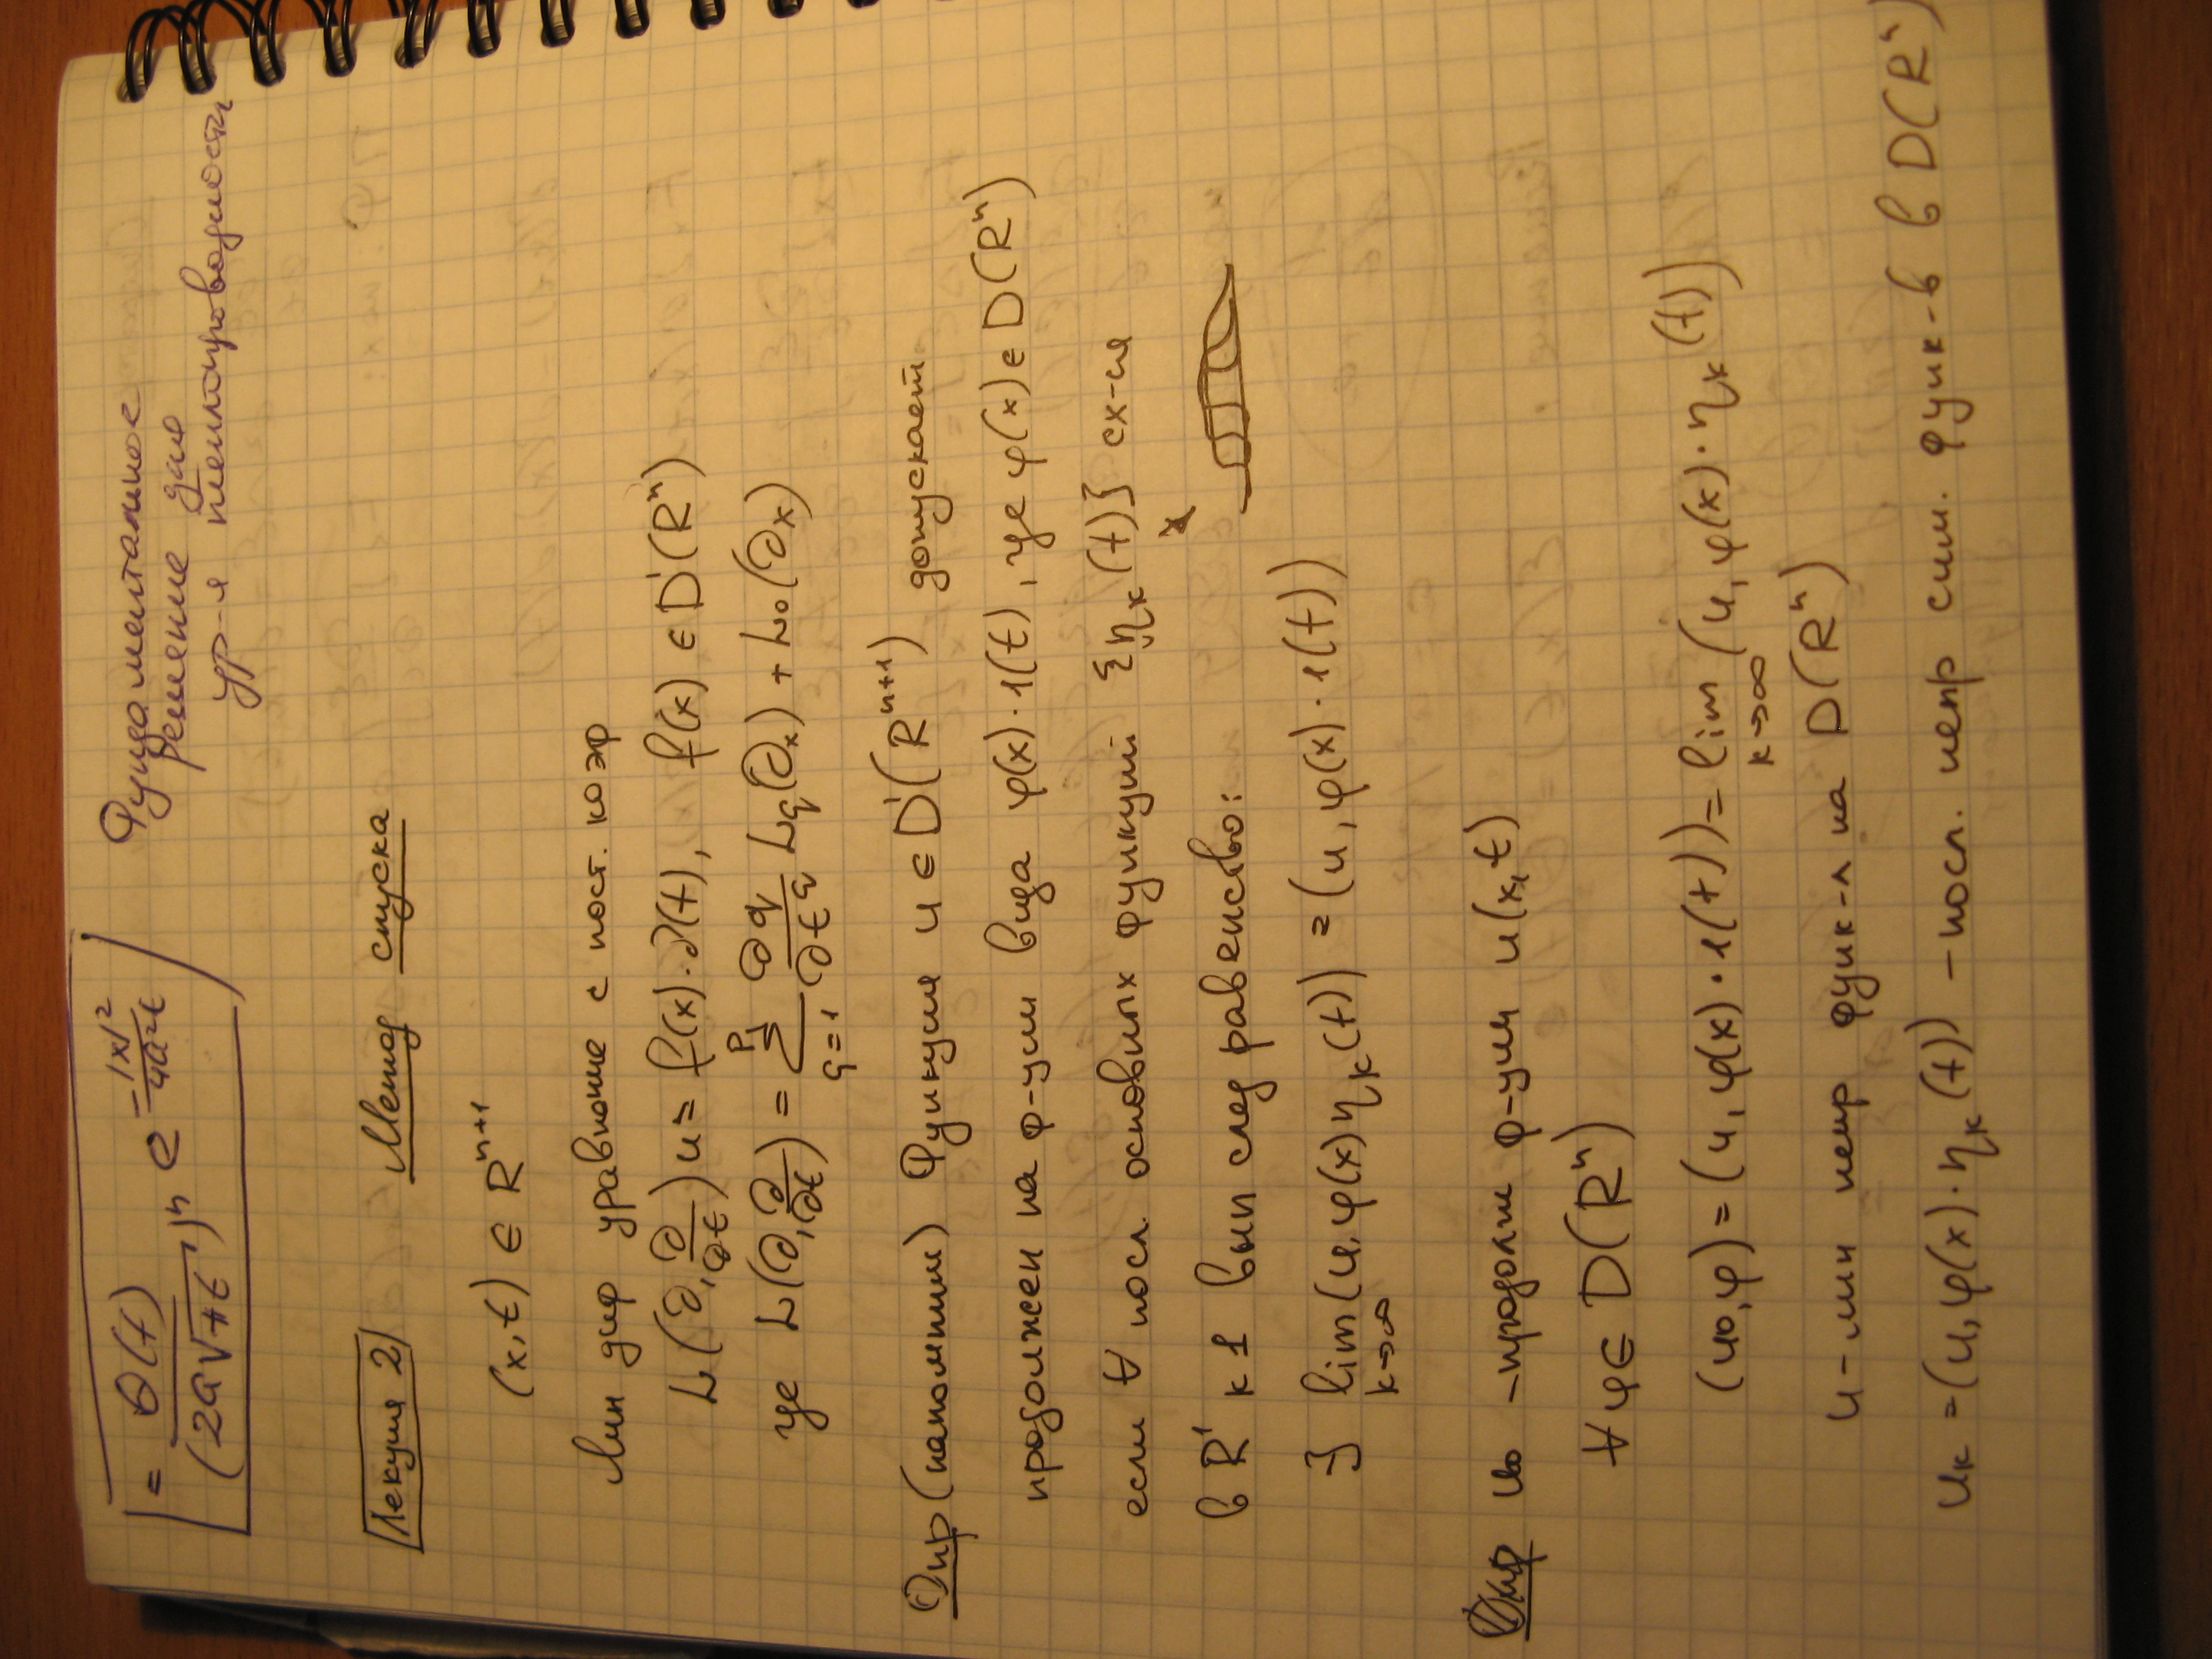 = θ(t) / (2a√πt)ⁿ e^(-|x|²/4a²t)
Фундаментальное
решение для
ур-я теплопроводность
Лекция 2 Метод спуска
(x,t) ∈ Rⁿ⁺¹
Лин диф уравнение с пост. коэф
L(∂, ∂/∂t)u = f(x)·∂(t), f(x) ∈ D'(Rⁿ)
где L(∂, ∂/∂t) = Σ_{q=1}^{P} ∂^q/∂t^q L_q(∂ₓ) + L₀(∂ₓ)
Опр (напомнить) Функция u ∈ D'(Rⁿ⁺¹) допускает
продолжен на ф-ции вида φ(x)·1(t), где φ(x) ∈ D(Rⁿ)
если ∀ посл. основных функций {ηₖ(t)} сх-ся
в R¹ к 1 вып след равенство:
∃ lim_{k→∞} (u, φ(x)ηₖ(t)) = (u, φ(x)·1(t))
Опр u₀ -продолж ф-ции u(x,t)
∀φ∈ D(Rⁿ)
(u₀,φ) = (u, φ(x)·1(t)) = lim_{k→∞} (u, φ(x)·ηₖ(t))
u - лин непр функ-л на D(Rⁿ)
uₖ = (u, φ(x)·ηₖ(t)) - посл. непр лин. функ-в в D(Rⁿ)